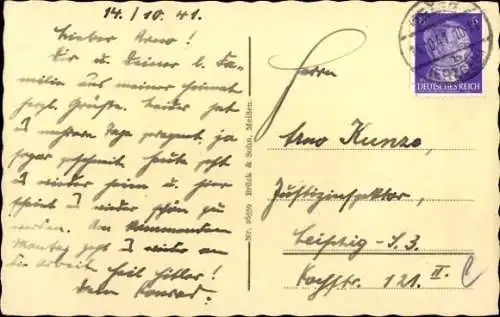 14./10.41.
Lieber Arno!
Dir u. Deiner l. Fa-
milie aus meiner Heimat
herzl. Grüße. Leider hat
3 mehrere Tage geregnet, ja
sogar geschneit heute geht
wieder heim u. hier
scheint wieder schön zu
werden. Am kommenden
Montag geht wieder an
die Arbeit Heil Hitler!
Dein Konrad.
Nr. 26359 Brück & Sohn, Meißen.
DEUTSCHES REICH
Herrn
Arno Kunze,
Justizinspektor,
Leipzig-S.3.
Kochstr. 121 II.